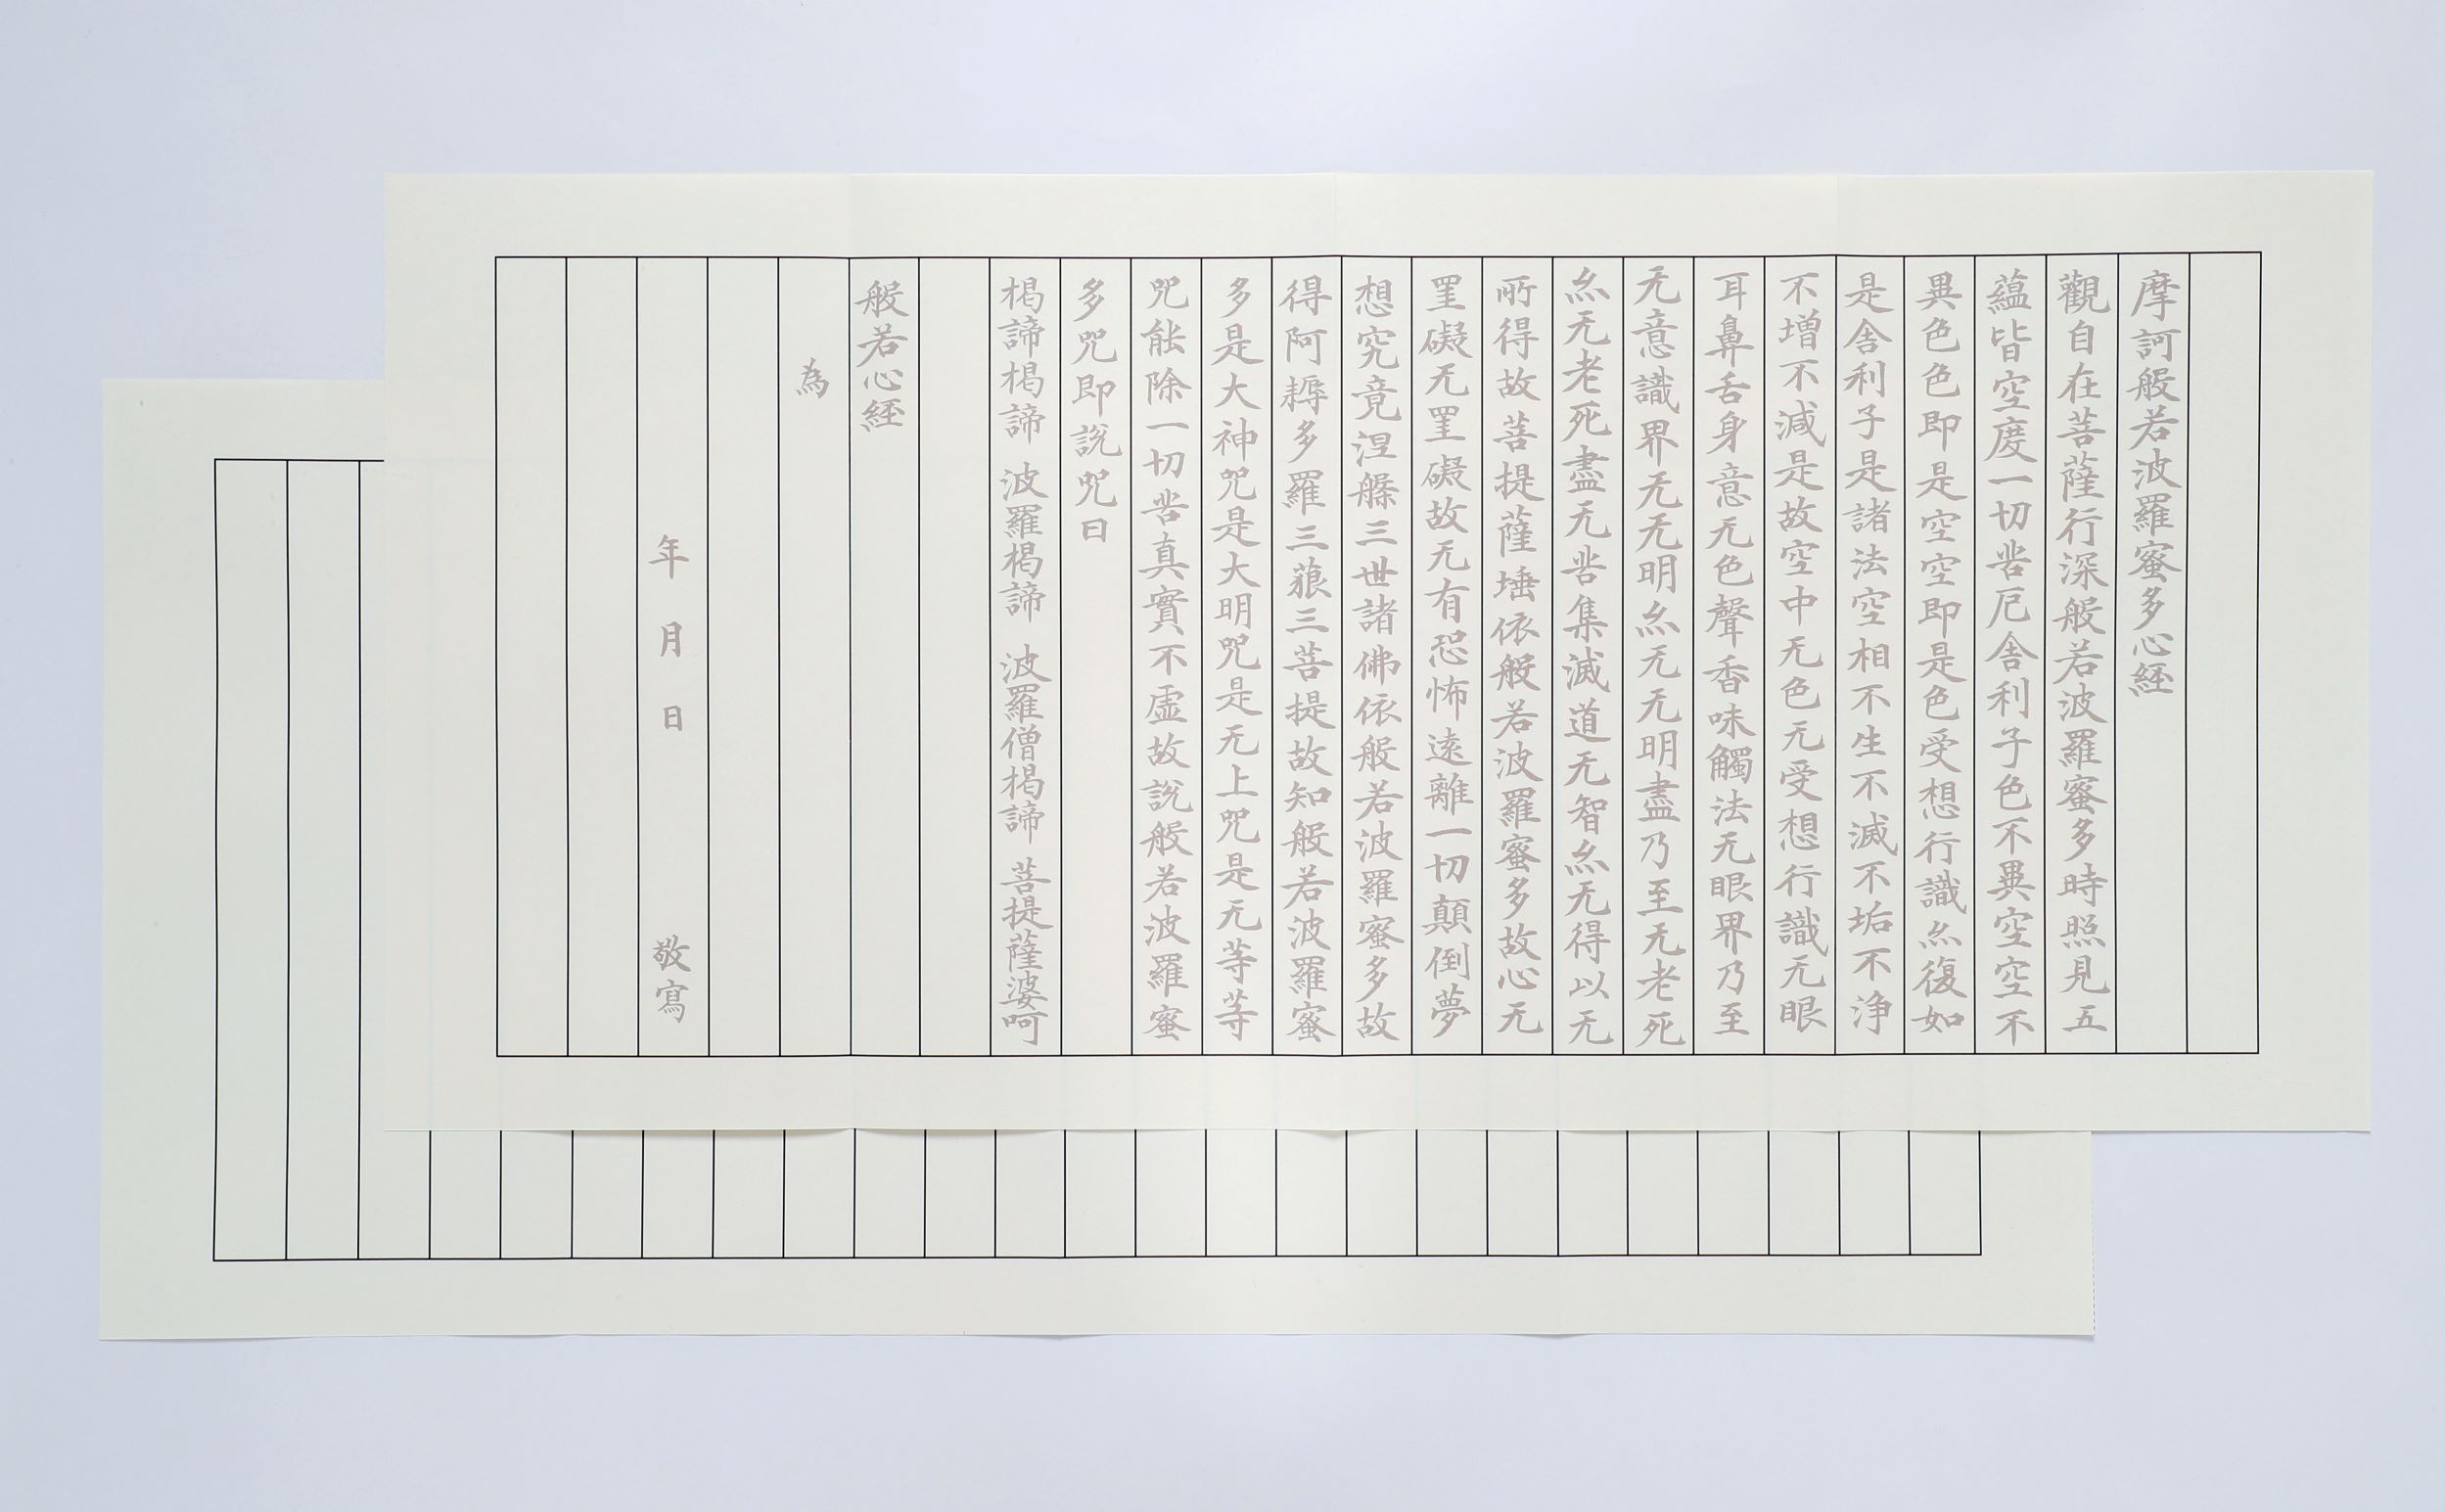 摩訶般若波羅蜜多心経
觀自在菩薩行深般若波羅蜜多時照見五
蘊皆空度一切苦厄舎利子色不異空空不
異色色即是空空即是色受想行識亦復如
是舎利子是諸法空相不生不滅不垢不浄
不增不減是故空中无色无受想行識无眼
耳鼻舌身意无色聲香味觸法无眼界乃至
无意識界无无明亦无无明盡乃至无老死
亦无老死盡无苦集滅道无智亦无得以无
所得故菩提薩埵依般若波羅蜜多故心无
罣礙无罣礙故无有恐怖遠離一切顛倒夢
想究竟涅槃三世諸佛依般若波羅蜜多故
得阿耨多羅三藐三菩提故知般若波羅蜜
多是大神咒是大明咒是无上咒是无等等
咒能除一切苦真實不虛故說般若波羅蜜
多咒即說咒曰
楬諦楬諦 波羅楬諦 波羅僧楬諦 菩提薩婆呵
般若心経
為
年 月 日 敬寫